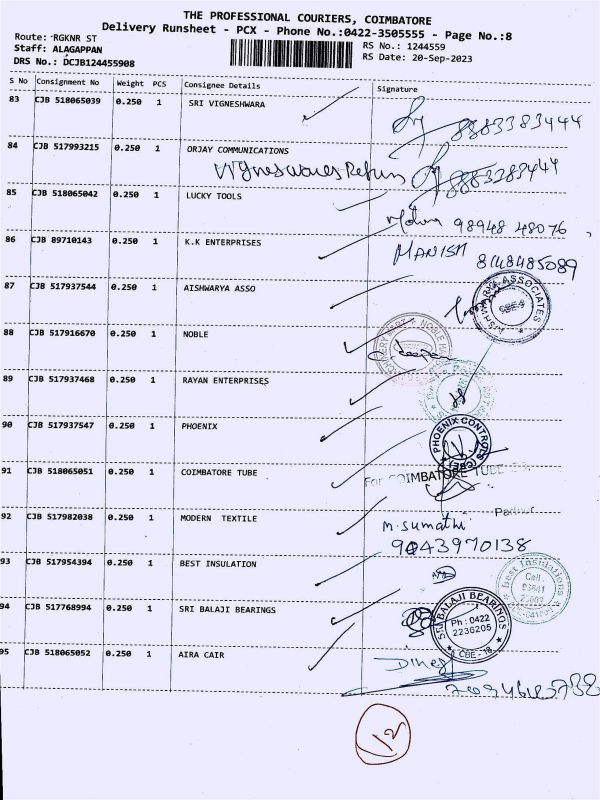 THE PROFESSIONAL COURIERS, COIMBATORE
Delivery Runsheet - PCX - Phone No.:0422-3505555 - Page No.:8
Route: RGKNR ST
Staff: ALAGAPPAN
DRS No.: DCJB124455908
RS No.: 1244559
RS Date: 20-Sep-2023
S No Consignment No Weight PCS Consignee Details Signature
83 CJB 518065039 0.250 1 SRI VIGNESHWARA
8883383444
84 CJB 517993215 0.250 1 ORJAY COMMUNICATIONS
85 CJB 518065042 0.250 1 LUCKY TOOLS
98948 48076
86 CJB 89710143 0.250 1 K.K ENTERPRISES
MANISH
8148485089
87 CJB 517937544 0.250 1 AISHWARYA ASSO
88 CJB 517916670 0.250 1 NOBLE
89 CJB 517937468 0.250 1 RAYAN ENTERPRISES
90 CJB 517937547 0.250 1 PHOENIX
PHOENIX CONTROLS
91 CJB 518065051 0.250 1 COIMBATORE TUBE
For COIMBATORE TUBE
Partner
92 CJB 517982038 0.250 1 MODERN TEXTILE
M. Sumathi
9043970138
93 CJB 517954394 0.250 1 BEST INSULATION
Best Insulations
Cell :
94 CJB 517768994 0.250 1 SRI BALAJI BEARINGS
SRI BALAJI BEARINGS
Ph : 0422
2236205
CBE - 18
95 CJB 518065052 0.250 1 AIRA CAIR
Dines